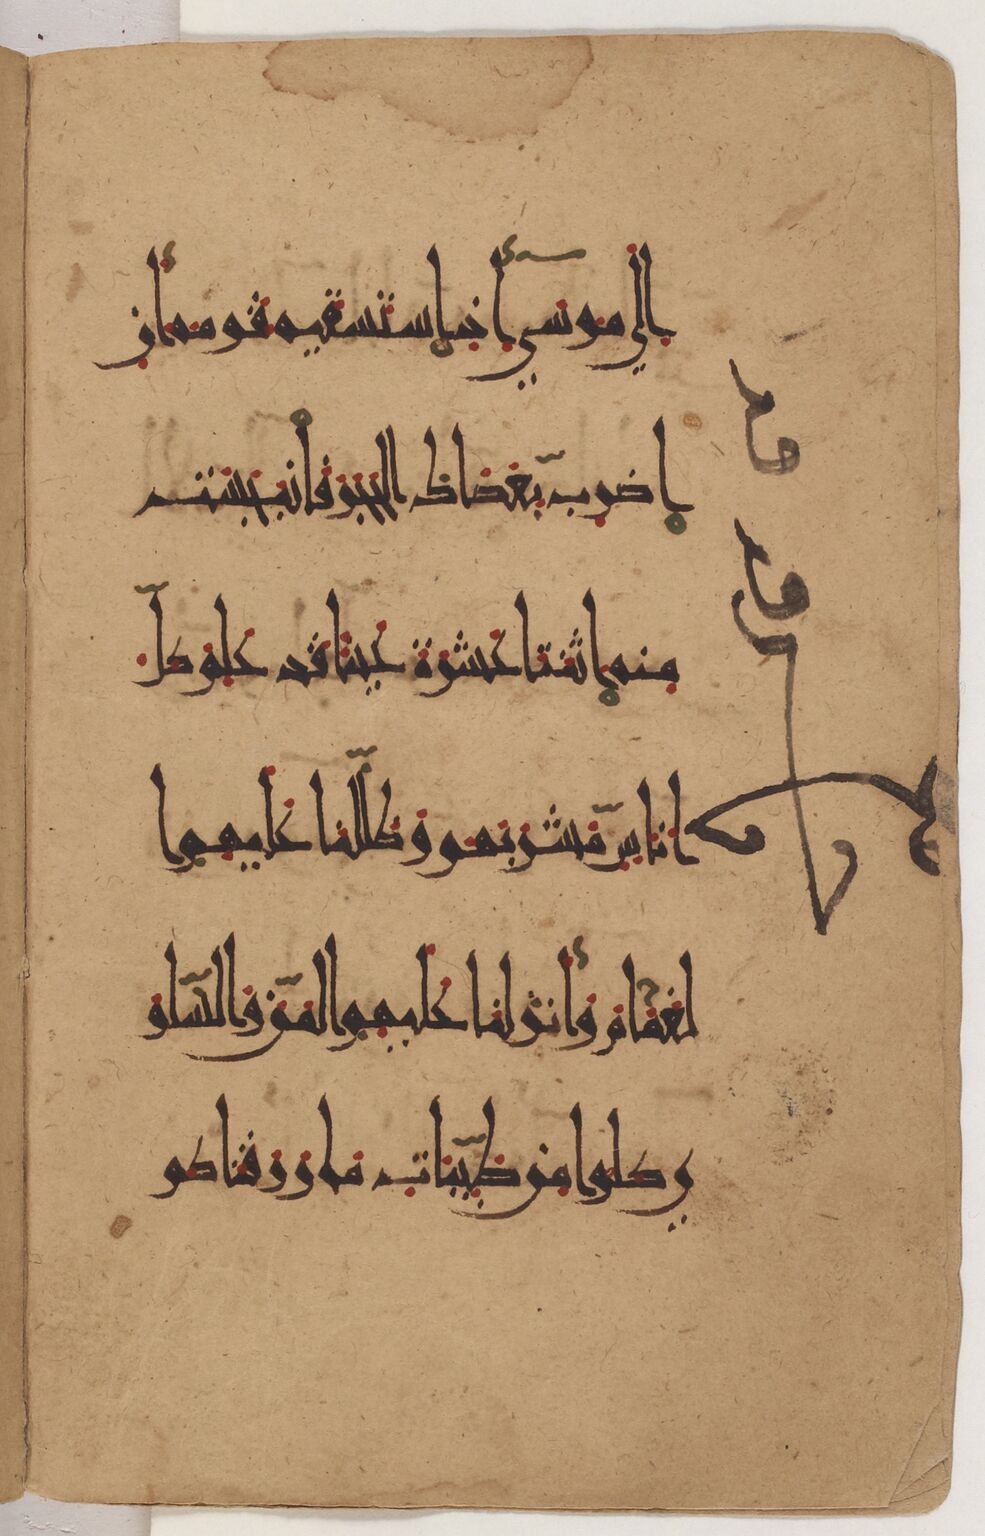 ا إلى موسى إذ استسقيه قومه أن
اضرب بعصاك الحجر فانبجست
منه اثنتا عشرة عينا قد علم كل
اناس مشربهم وظللنا عليهم ا
لغمام وأنزلنا عليهم المن والسلو
ى كلوا من طيبات ما رزقناكم